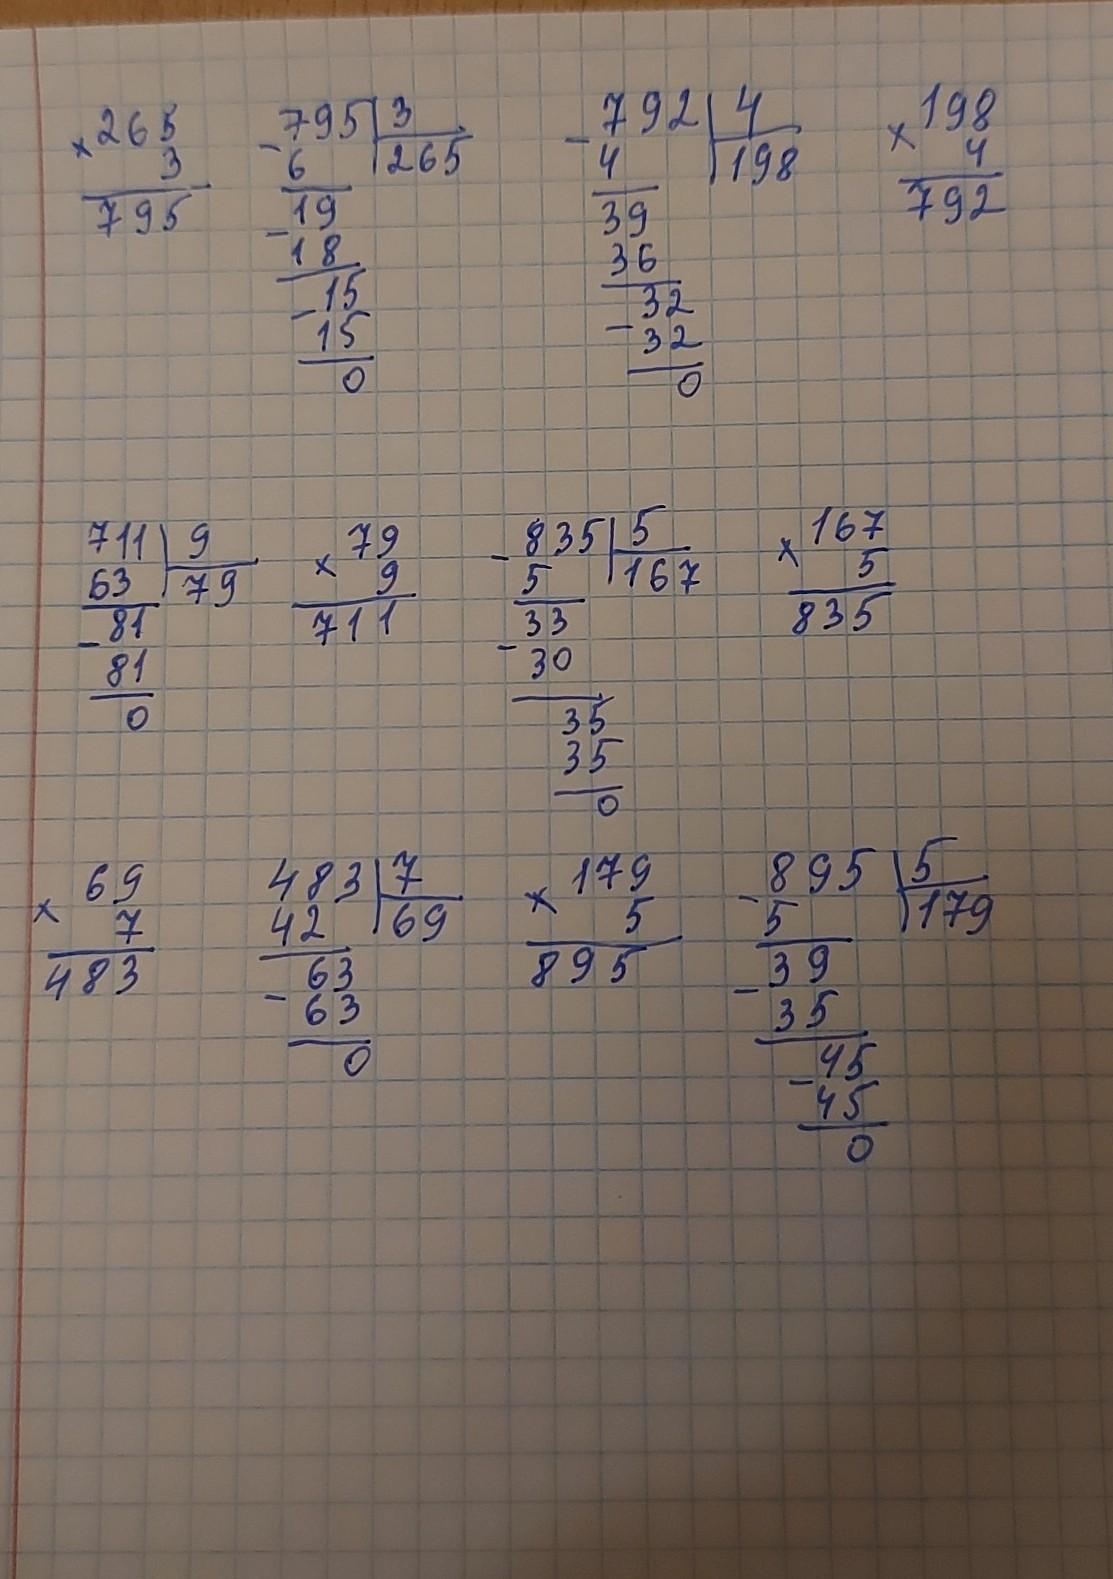 × 265   - 795 | 3   - 792 | 4   × 198
3   6   265   4   198   4
795   19   39   792
- 18   36
- 15   32
15   - 32
0   0
711 | 9   × 79   - 835 | 5   × 167
63   79   9   5   167   5
- 81   711   33   835
81   - 30
0   35
35
0
× 69   483 | 7   × 179   - 895 | 5
7   42   69   5   5   179
483   63   895   39
- 63   - 35
0   - 45
45
0